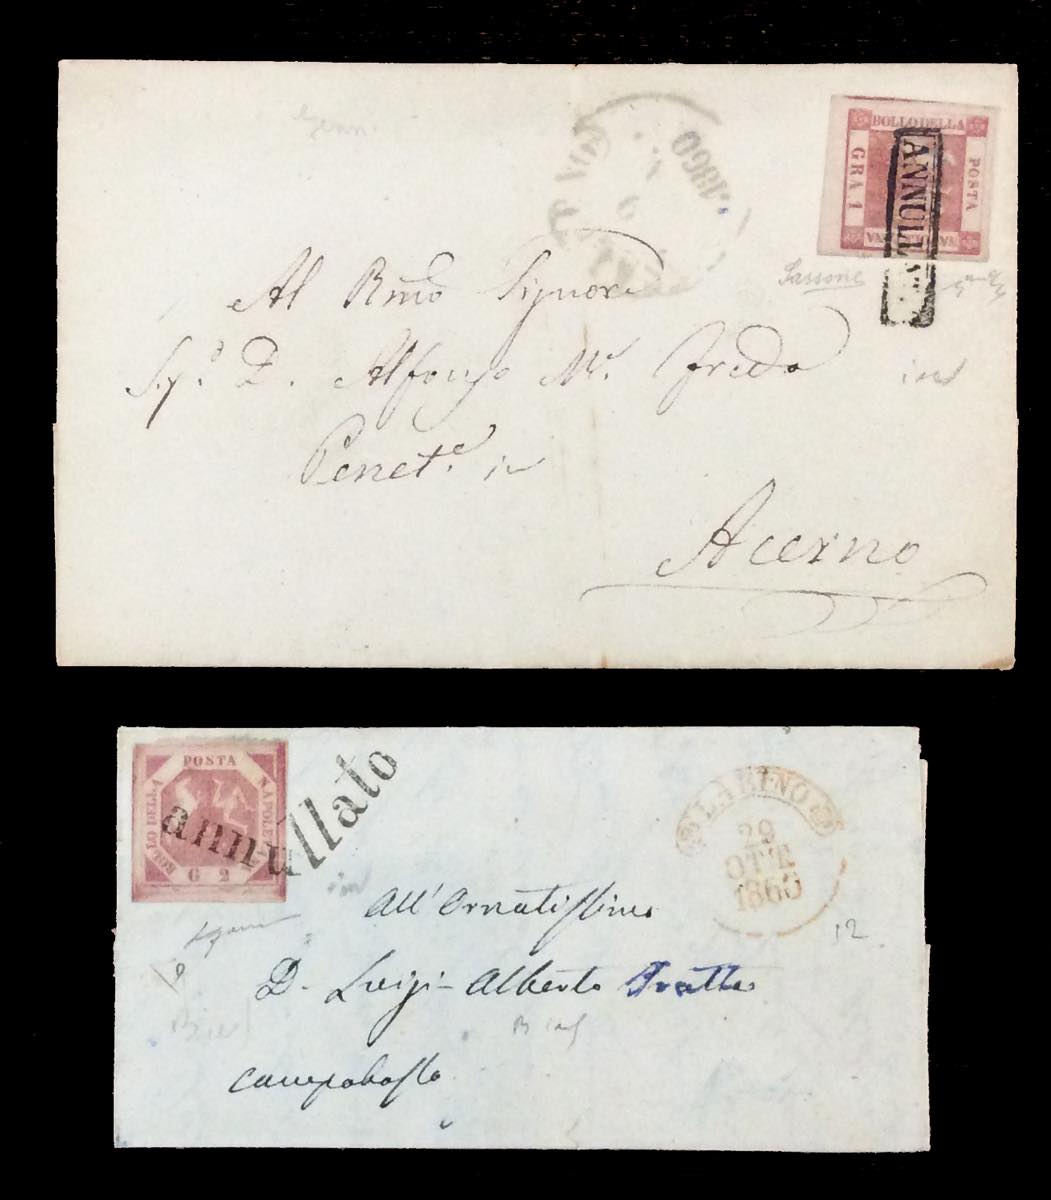 1860
BOLLO DELLA
POSTA
NAPOLETANA
GRA 1
ANNULLATO
Al Rmo Signore
Sig.r D. Alfonso Ma. Freda
Sassone
Penete. in
Acerno
POSTA
NAPOLETANA
BOLLO DELLA
G 2
annullato
LARINO
29
OTT.
1860
All'Ornatissimo
12
D. Luigi-Alberto Trotta
Campobasso